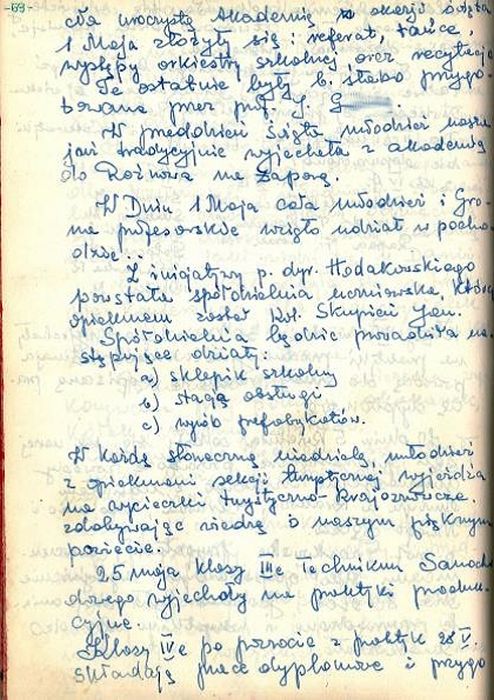 -69-
Na uroczystą Akademię z okazji Święta
1 Maja złożyły się: referat, tańce,
występy orkiestry szkolnej oraz recytacje
Te ostatnie były b. słabo przygo-
towane przez prof. J. G
W przeddzień Święta młodzież nasza
już tradycyjnie wyjechała z akademią
do Rożnowa na Zaporę.
W Dniu 1 Maja cała młodzież i Gro-
no profesorskie wzięło udział w pocho-
dzie..
Z inicjatywy p. dyr. Hodakowskiego
powstała spółdzielnia uczniowska, której
opiekunem został kol. Skupień Jan.
Spółdzielnia będzie prowadziła na-
stępujące działy:
a) sklepik szkolny
b) stację obsługi
c) wyrób prefabykatów.
W każdą słoneczną niedzielę, młodzież
z opiekunami sekcji turystycznej wyjeżdża
na wycieczki turystyczno-krajoznawcze.
zdobywając wiedzę o naszym pięknym
powiecie.
25 maja klasy IIIe Technikum Samocho
dowego wyjechały na praktyki produk-
cyjne.
Klasy IVe po powrocie z praktyk 28 V.
składają prace dyplomowe i przygo